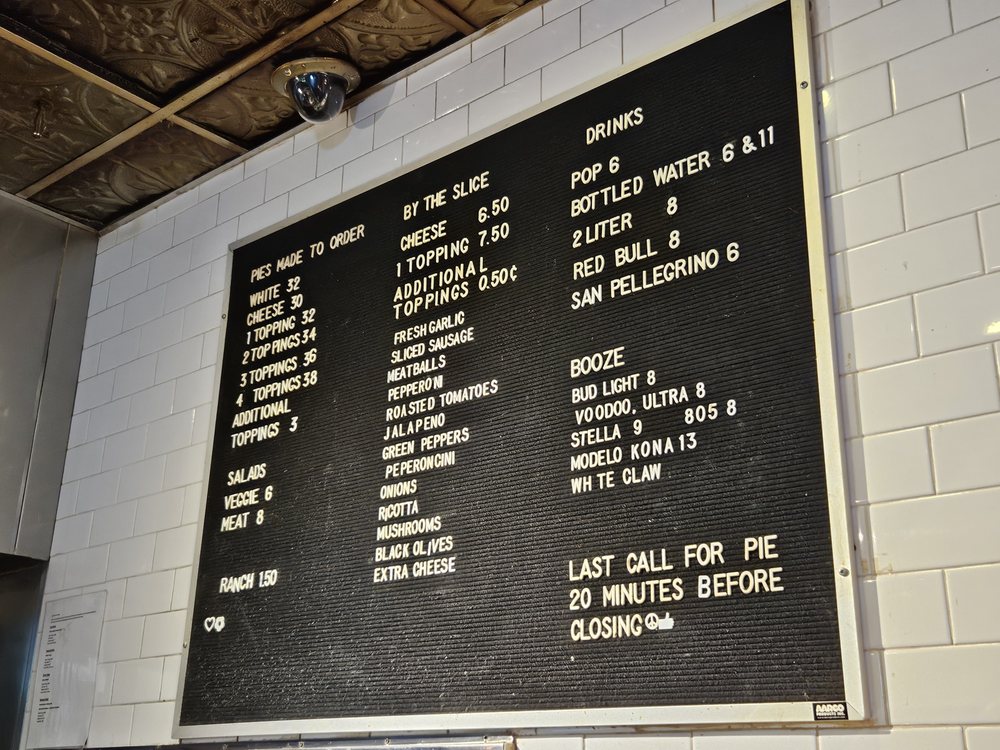 PIES MADE TO ORDER
WHITE 32
CHEESE 30
1 TOPPING 32
2 TOPPINGS 34
3 TOPPINGS 36
4 TOPPINGS 38
ADDITIONAL
TOPPINGS 3
SALADS
VEGGIE 6
MEAT 8
RANCH 1.50
BY THE SLICE
CHEESE 6.50
1 TOPPING 7.50
ADDITIONAL
TOPPINGS 0.50¢
FRESH GARLIC
SLICED SAUSAGE
MEATBALLS
PEPPERONI
ROASTED TOMATOES
JALAPENO
GREEN PEPPERS
PEPERONCINI
ONIONS
RICOTTA
MUSHROOMS
BLACK OLIVES
EXTRA CHEESE
DRINKS
POP 6
BOTTLED WATER 6 & 11
2 LITER 8
RED BULL 8
SAN PELLEGRINO 6
BOOZE
BUD LIGHT 8
VOODOO, ULTRA 8
STELLA 9 805 8
MODELO KONA 13
WH TE CLAW
LAST CALL FOR PIE
20 MINUTES BEFORE
CLOSING
AARCO